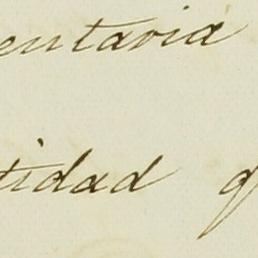 entaria
tidad q